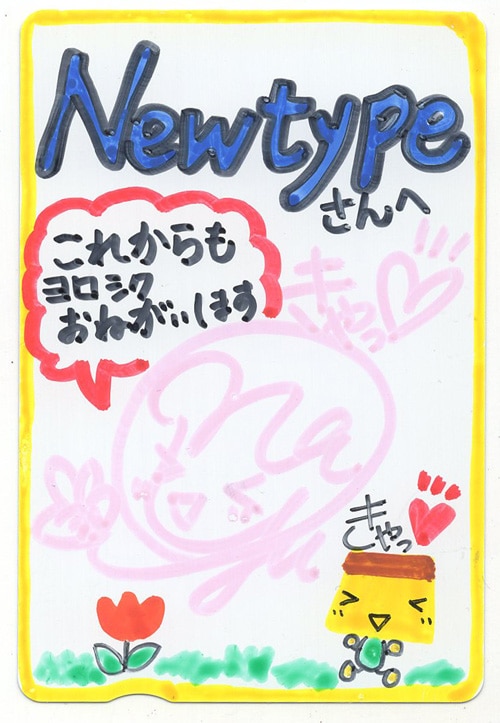 Newtype
さんへ
これからも
ヨロシク
おねがいします
きゃっ
きゃっ